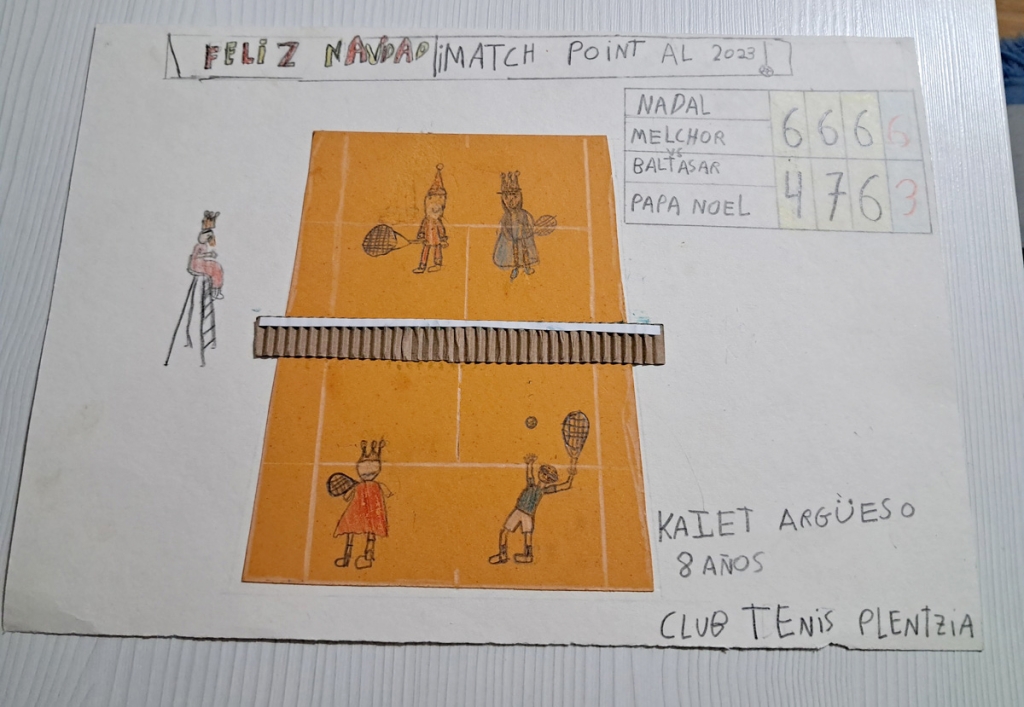 FELIZ NAVIDAD/¡MATCH POINT AL 2023!
NADAL
MELCHOR
6 6 6 6
VS
BALTASAR
PAPA NOEL
4 7 6 3
KAIET ARGÜESO
8 AÑOS
CLUB TENIS PLENTZIA